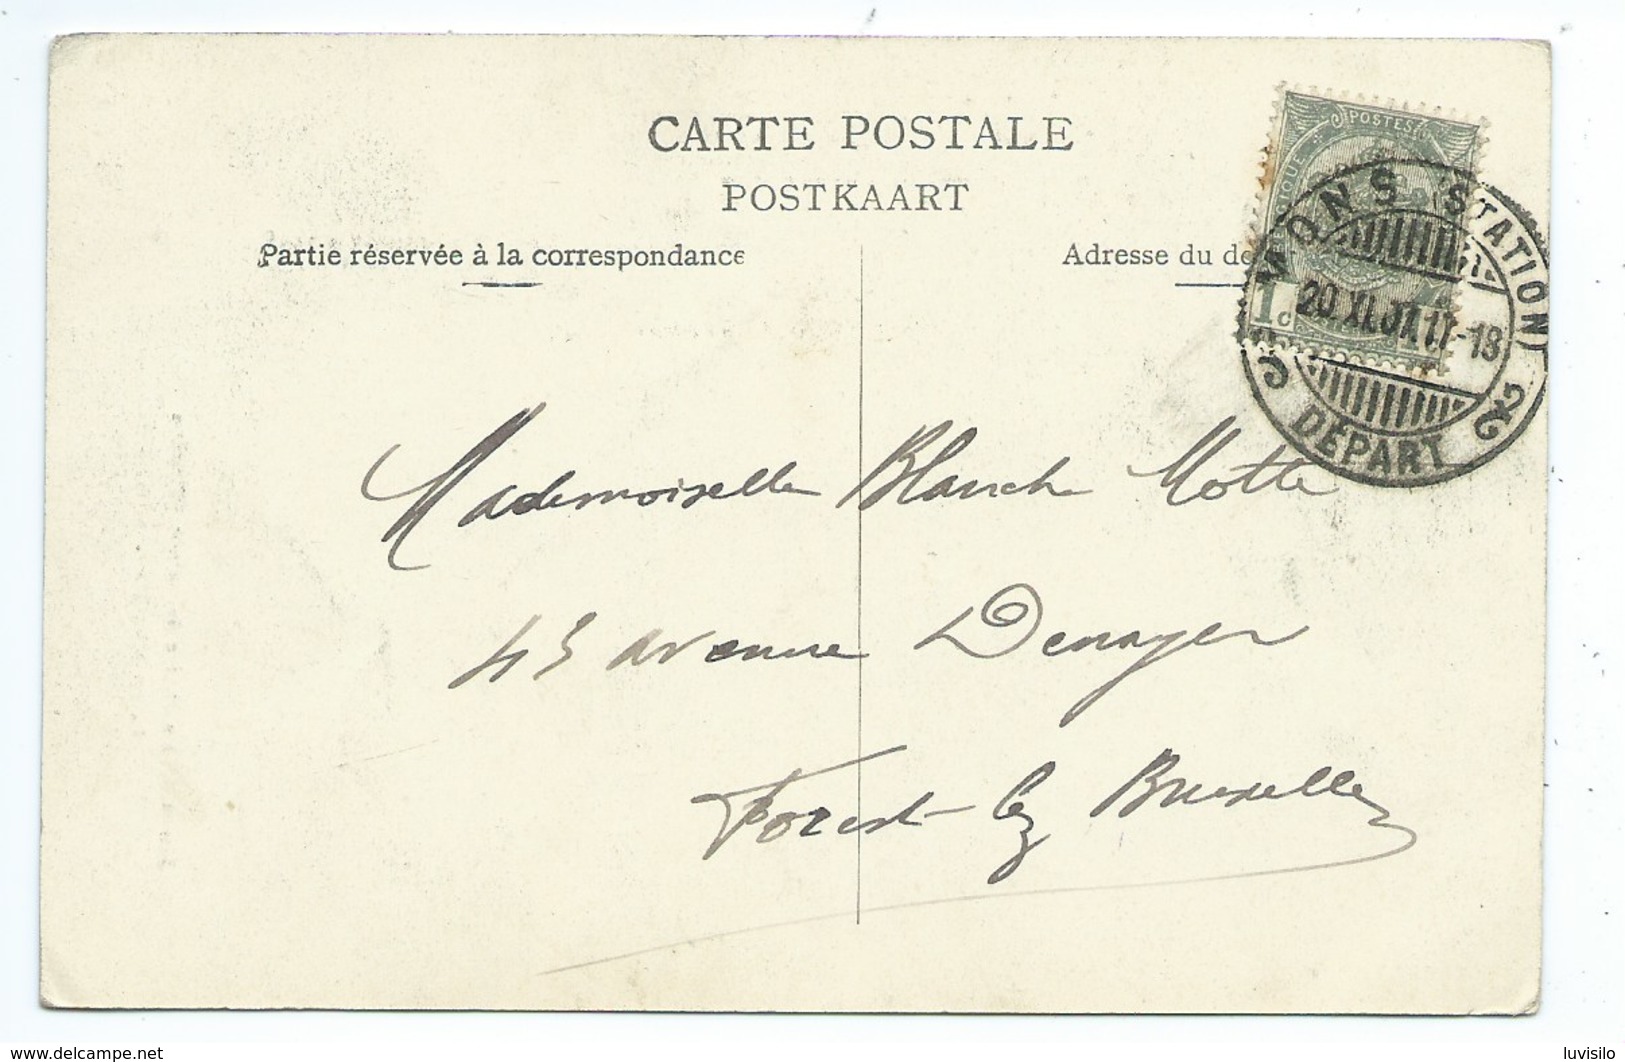 CARTE POSTALE
POSTKAART
Partie réservée à la correspondance
Adresse du de
POSTES
1 c
MONS (STATION)
20 XI 07 17-18
DÉPART
2 2
Mademoiselle Blanche Motte
43 avenue Denayer
Forest-lez Bruxelles
delcampe.net
luvisilo